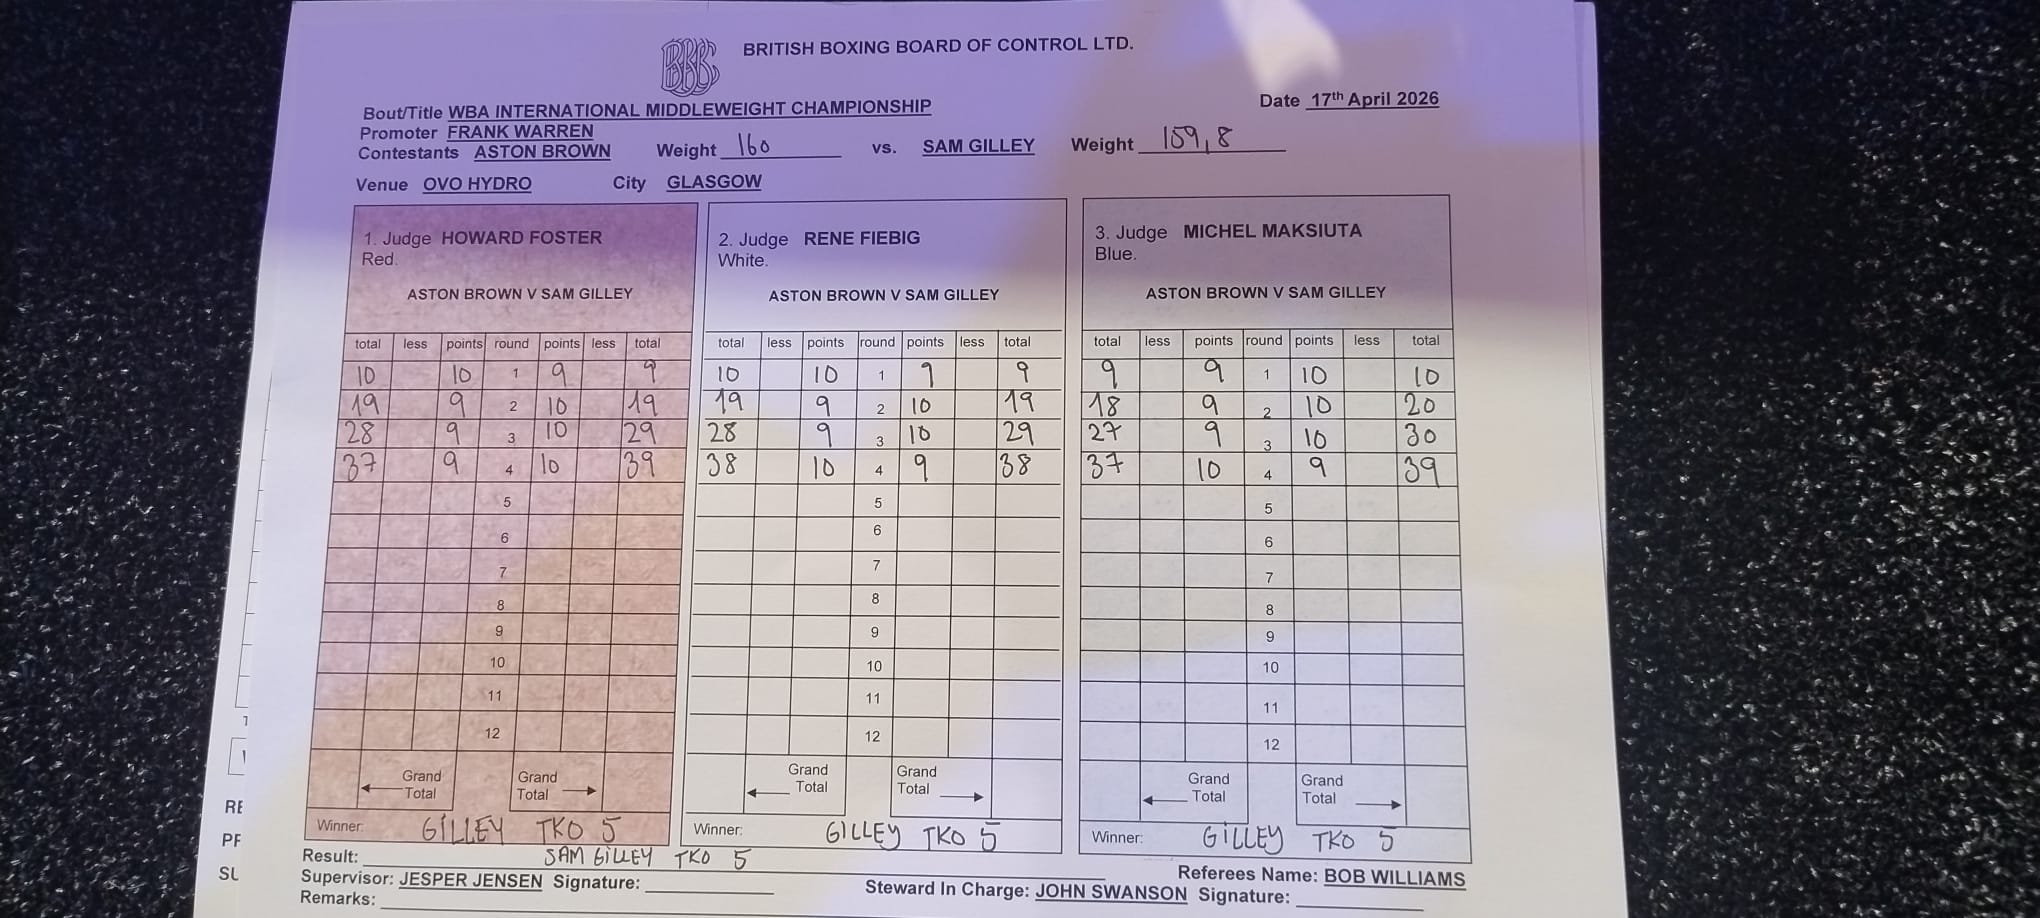 BBBC
BRITISH BOXING BOARD OF CONTROL LTD.
Bout/Title WBA INTERNATIONAL MIDDLEWEIGHT CHAMPIONSHIP
Date 17th April 2026
Promoter FRANK WARREN
Contestants ASTON BROWN Weight 160 vs. SAM GILLEY Weight 159,8
Venue OVO HYDRO City GLASGOW
1. Judge HOWARD FOSTER
Red.
ASTON BROWN V SAM GILLEY
total less points round points less total
10 10 1 9 9
19 9 2 10 19
28 9 3 10 29
37 9 4 10 39
5
6
7
8
9
10
11
12
Grand Total Grand Total
Winner: GILLEY TKO 5
2. Judge RENE FIEBIG
White.
ASTON BROWN V SAM GILLEY
total less points round points less total
10 10 1 9 9
19 9 2 10 19
28 9 3 10 29
38 10 4 9 38
5
6
7
8
9
10
11
12
Grand Total Grand Total
Winner: GILLEY TKO 5
3. Judge MICHEL MAKSIUTA
Blue.
ASTON BROWN V SAM GILLEY
total less points round points less total
9 9 1 10 10
18 9 2 10 20
27 9 3 10 30
37 10 4 9 39
5
6
7
8
9
10
11
12
Grand Total Grand Total
Winner: GILLEY TKO 5
Result: SAM GILLEY TKO 5
Referees Name: BOB WILLIAMS
Supervisor: JESPER JENSEN Signature:
Steward In Charge: JOHN SWANSON Signature:
Remarks: